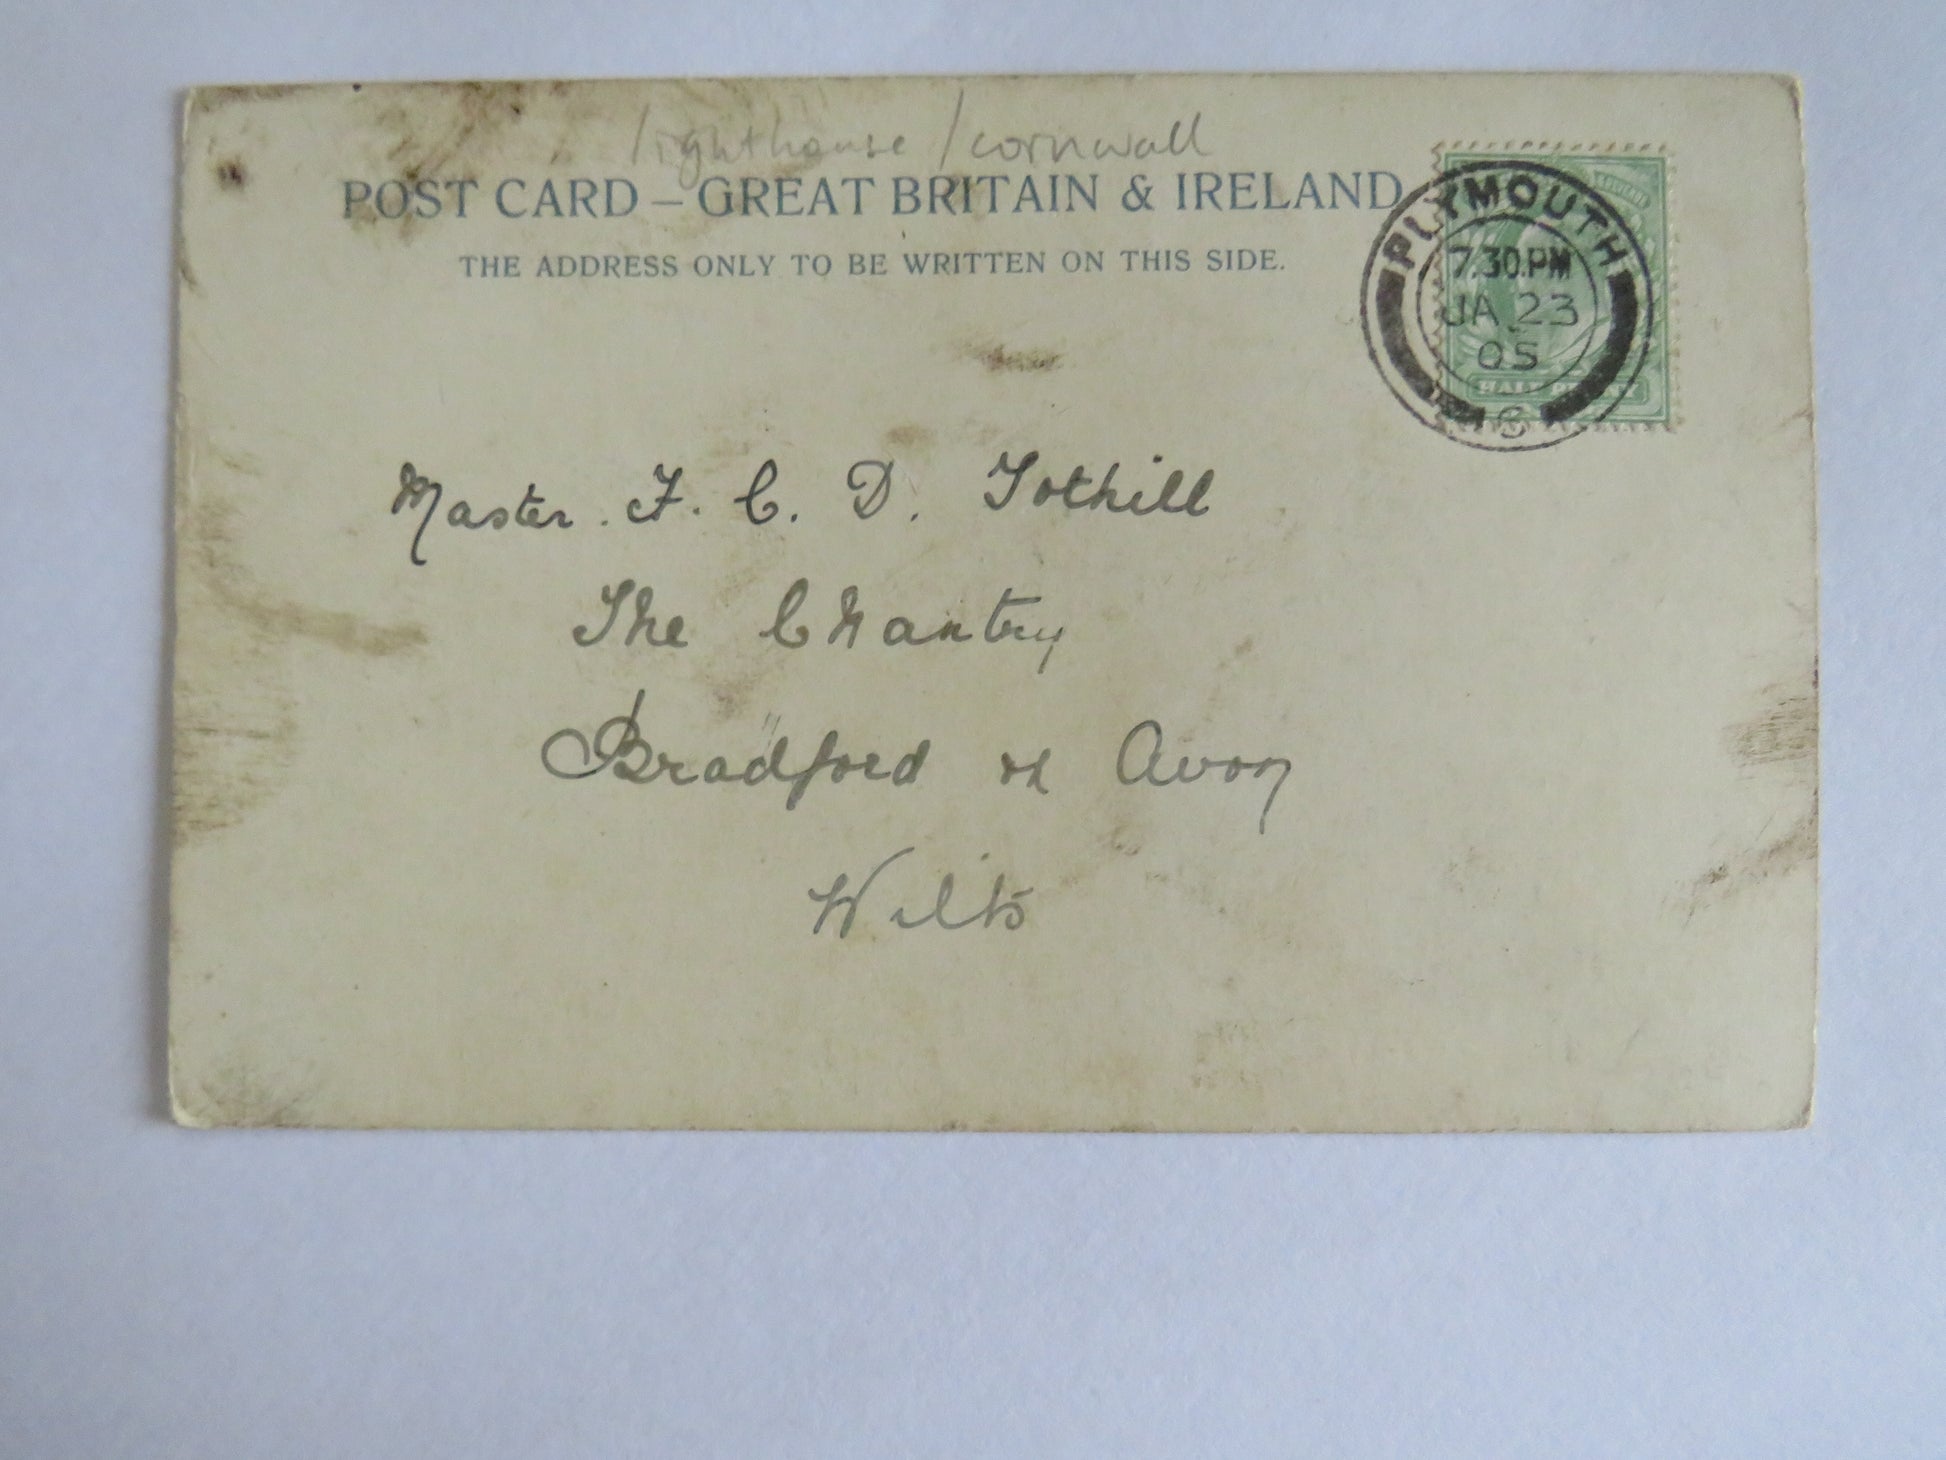 lighthouse / cornwall
POST CARD – GREAT BRITAIN & IRELAND
THE ADDRESS ONLY TO BE WRITTEN ON THIS SIDE.
PLYMOUTH
7.30.PM
JA 23
05
HALF PENNY
Master. F. C. D. Tothill
The Chantry
Bradford on Avon
Wilts